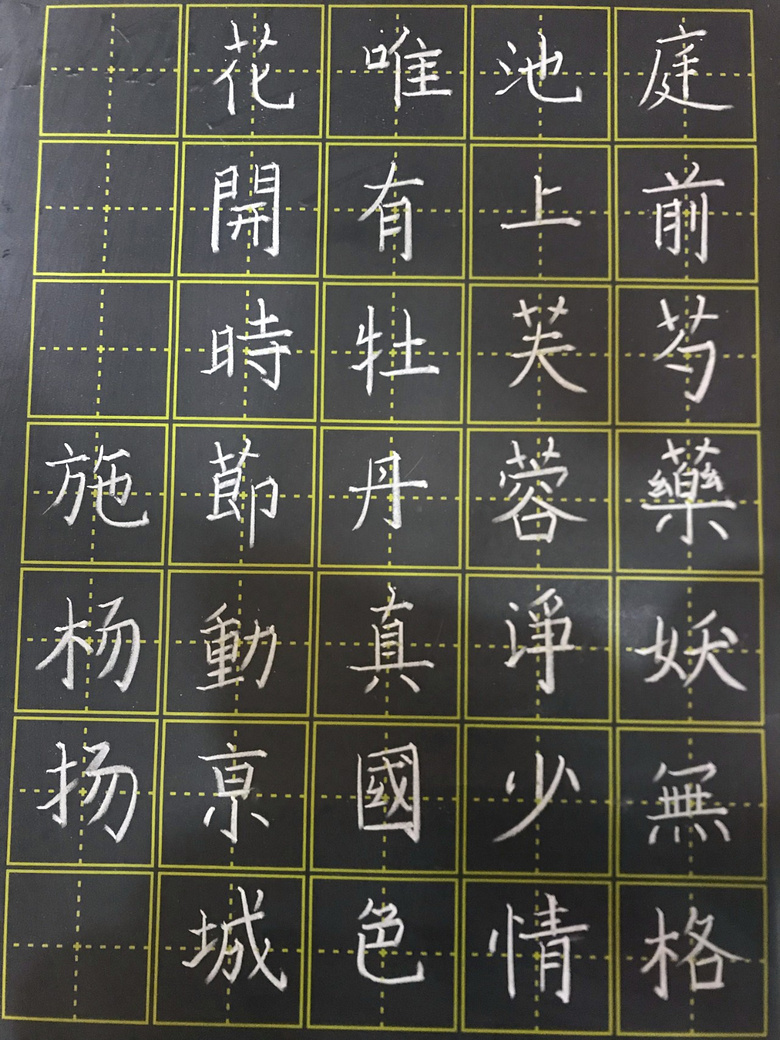 庭前芍藥妖無格
池上芙蓉淨少情
唯有牡丹真國色
花開時節動京城
施杨扬